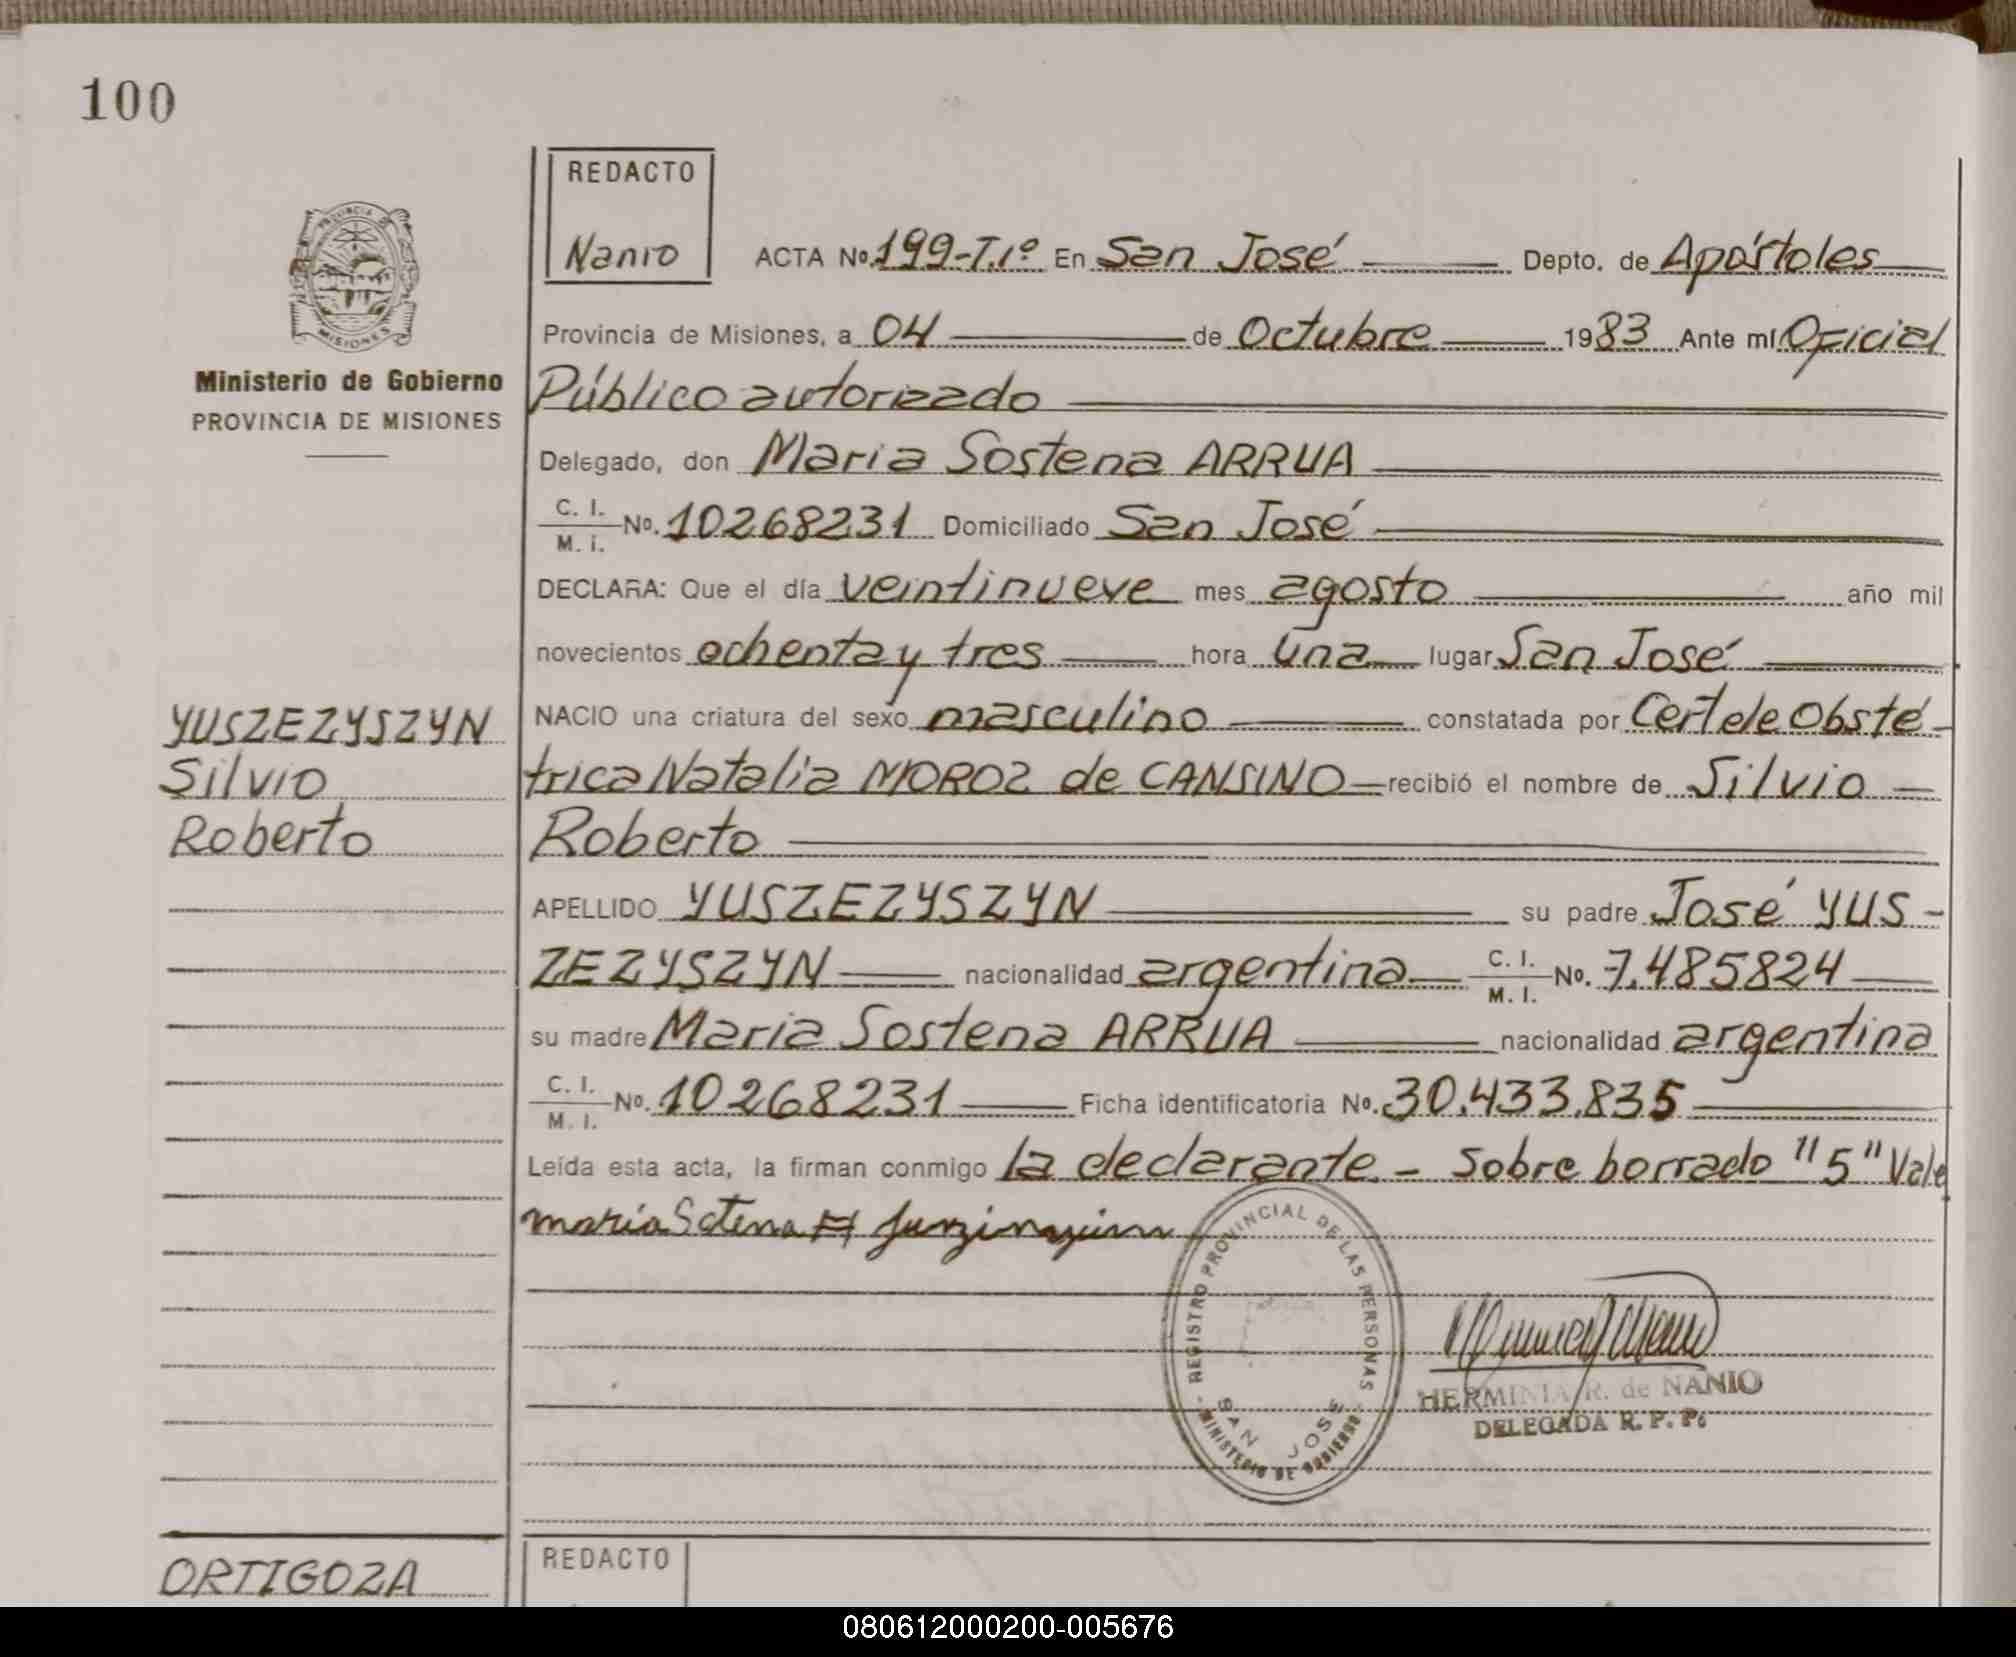 100
REDACTO
Nanio
ACTA No. 199-T.1º En San José Depto. de Apóstoles
Provincia de Misiones, a 04 de Octubre 1983 Ante mí Oficial
Ministerio de Gobierno
PROVINCIA DE MISIONES
Público autorizado
Delegado, don Maria Sostena ARRUA
C. I.
M. I. No. 10268231 Domiciliado San José
DECLARA: Que el día veintinueve mes agosto año mil
novecientos ochenta y tres hora una lugar San José
YUSZEZYSZYN
Silvio
Roberto
NACIO una criatura del sexo masculino constatada por Cert de Obsté-
trica Natalia MOROZ de CANSINO recibió el nombre de Silvio
Roberto
APELLIDO YUSZEZYSZYN su padre José YUS-
ZEZYSZYN nacionalidad argentina C. I.
M. I. No. 7.485824
su madre Maria Sostena ARRUA nacionalidad argentina
C. I.
M. I. No. 10268231 Ficha identificatoria No. 30.433.835
Leída esta acta, la firman conmigo la declarante.- Sobre borrado "5" Vale
REGISTRO PROVINCIAL DE LAS PERSONAS
SAN JOSE
MINISTERIO DE GOBIERNO
HERMINIA R. de NANIO
DELEGADA R. P. P.
ORTIGOZA
REDACTO
080612000200-005676